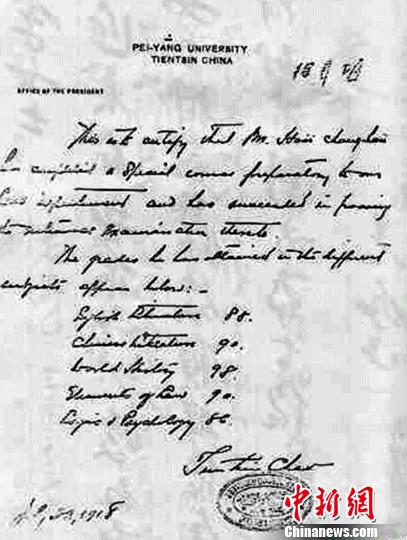 PEI-YANG UNIVERSITY
TIENTSIN CHINA
OFFICE OF THE PRESIDENT
This is to certify that Mr. Hsü
has completed a Special course preparatory to our
Law department and has succeeded in passing
to entrance examination thereto.
The grades he has attained in the different
subjects appear below:-
English Literature 88.
Chinese Literature 90.
World History 98.
Elements of Law 90.
Logic & Psychology 86.
Tientsin
1918
中新网
Chinanews.com